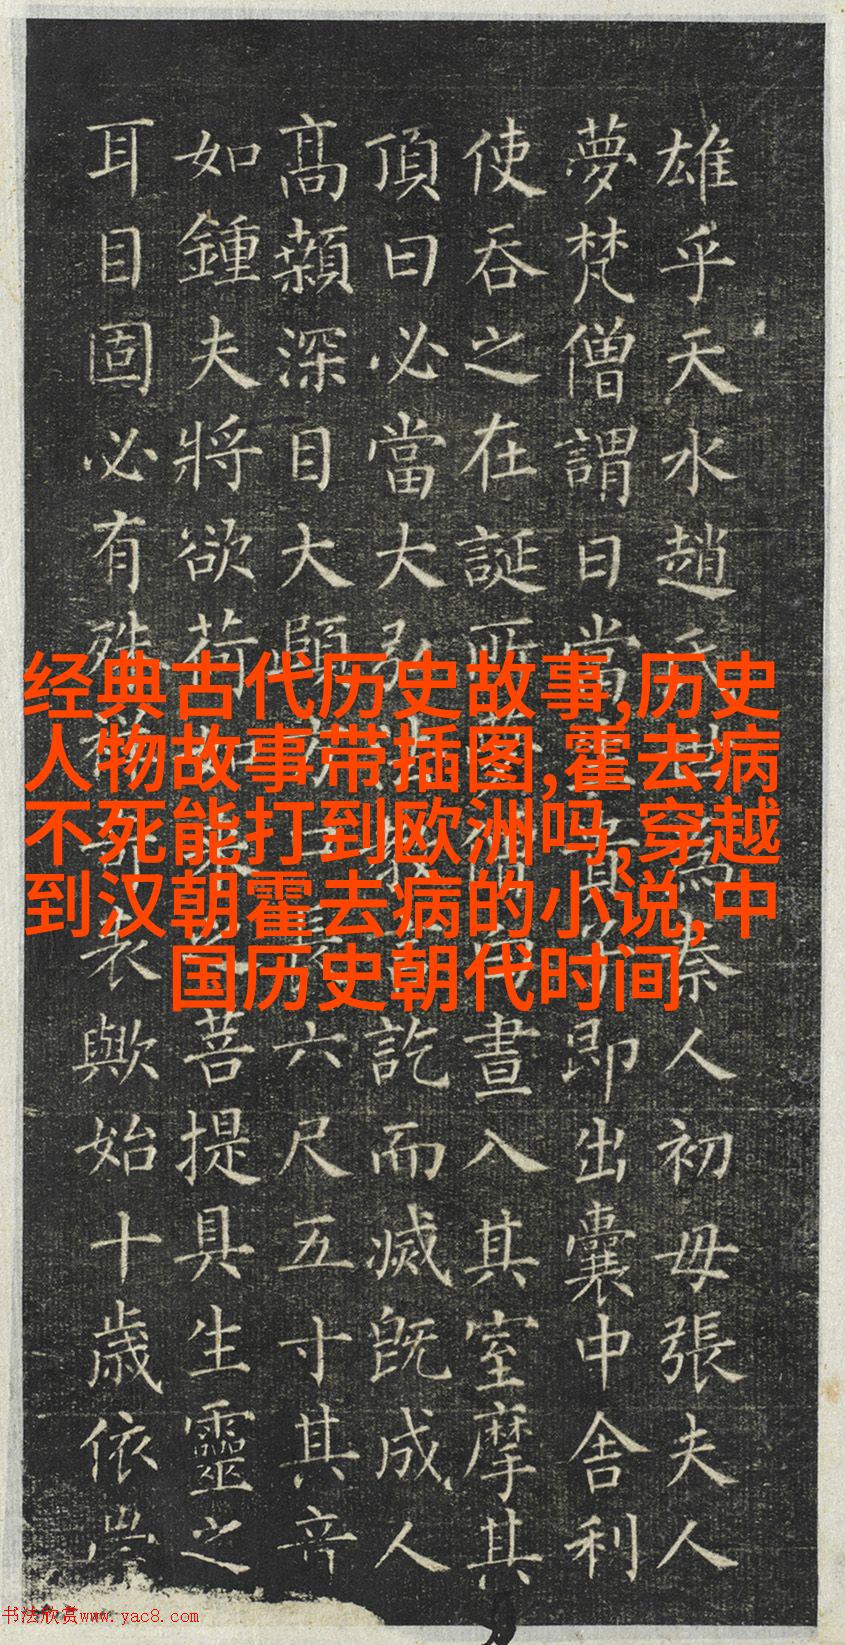 雄乎天水趙氏為秦人初母張夫人
夢梵僧謂曰當貴即出囊中舍利
使吞之在誕所僧晝入其室摩其
頂曰必當大弘訖而滅既成人
高顙深目大頤六尺五寸其音
如鍾夫將欲荷菩提具生靈之
耳目固必有殊奇表歟始十歲依
经典古代历史故事,历史
人物故事带插图,霍去病
不死能打到欧洲吗,穿越
到汉朝霍去病的小说,中
国历史朝代时间
书法欣赏www.yac8.com